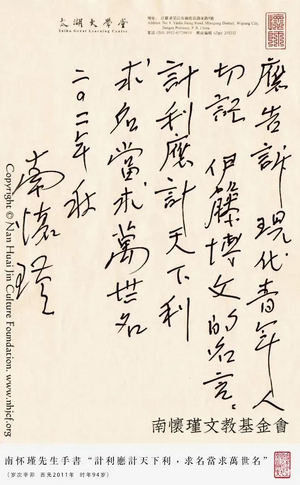 太湖大學堂
Taihu Great Learning Centre
應告訴現代青年人
切記 伊藤博文的名言。
計利應計天下利
求名當求萬世名
二〇一一年秋
南懷瑾
Copyright © Nan Huai Jin Culture Foundation. www.nhjcf.org
南懷瑾文教基金會
南怀瑾先生手書“計利應計天下利，求名當求萬世名”
（岁次辛卯 西元2011年 时年94岁）